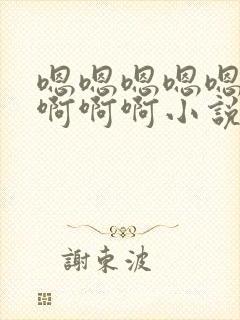 嗯嗯嗯嗯嗯
啊啊啊小說
謝東波